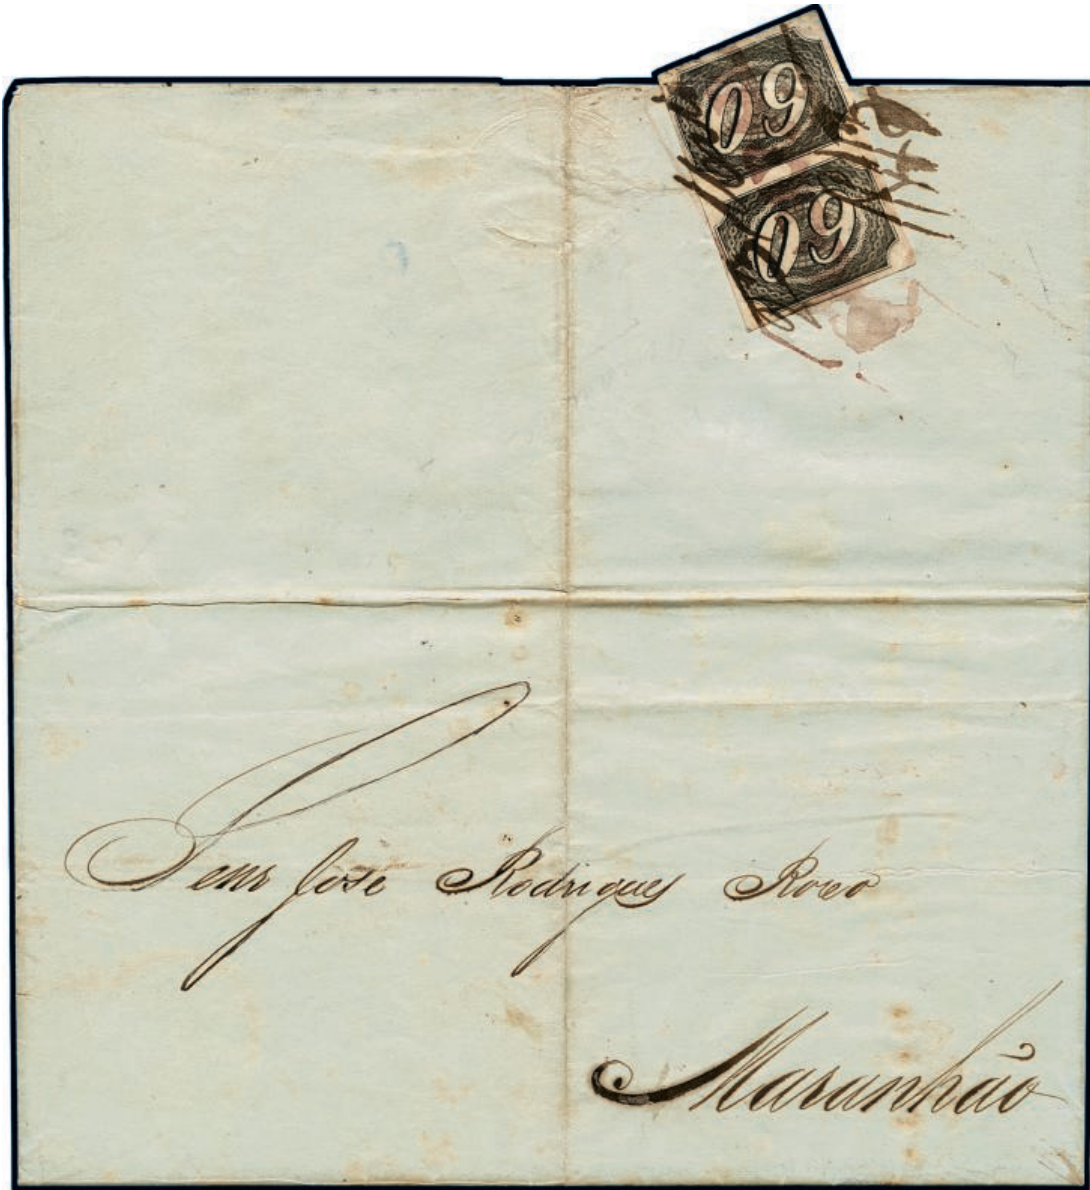 60
60
Senr José Rodrigues Roxo
Maranhão